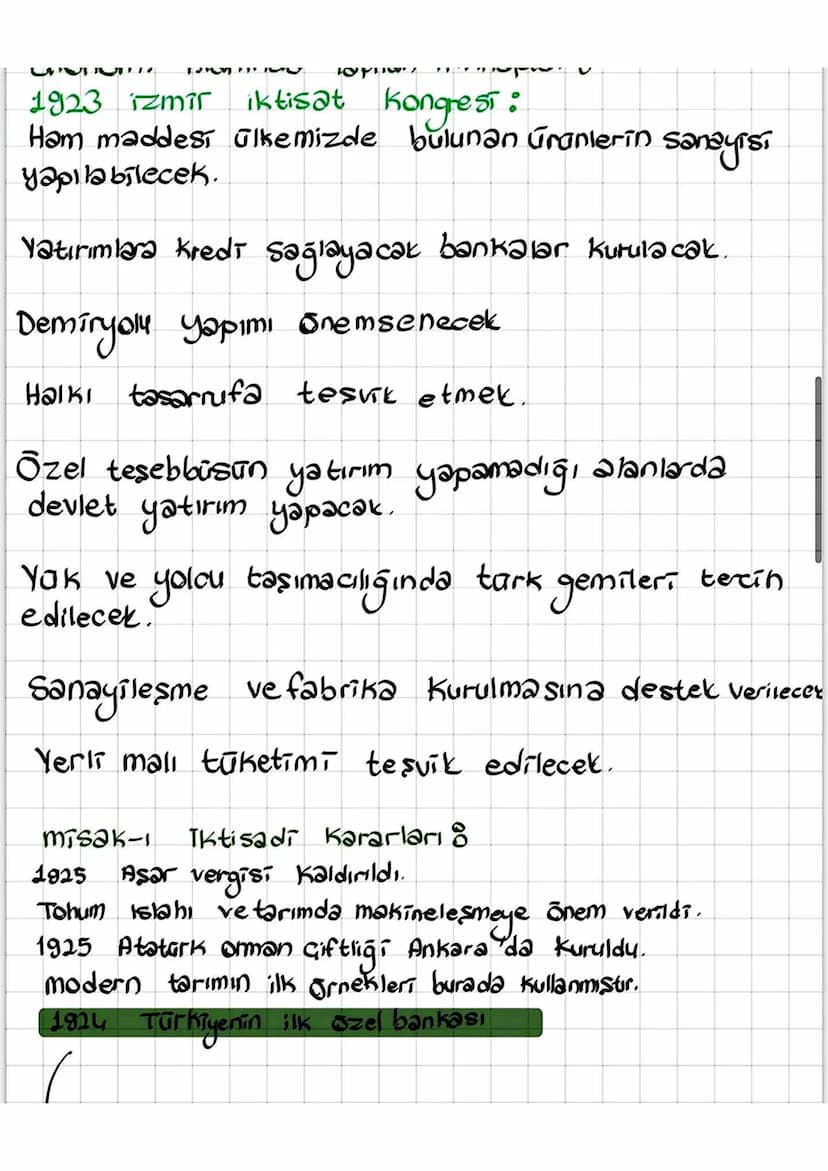 1923 izmir iktisat kongresi:
Ham maddesi ülkemizde bulunan ürünlerin sanayisi
yapılabilecek.
Yatırımlara kredi sağlayacak bankalar kurulacak.
Demiryolu yapımı önemsenecek
Halkı tasarrufa tesvik etmek.
Özel teşebbüsün yatırım yapamadığı alanlarda
devlet yatırım yapacak.
Yük ve yolcu taşımacılığında türk gemileri tercih
edilecek.
Sanayileşme ve fabrika kurulmasına destek verilecek
Yerli malı tüketimi teşvik edilecek.
misak-ı iktisadi kararları:
1925 Aşar vergisi kaldırıldı.
Tohum ıslahı ve tarımda makineleşmeye önem verildi.
1925 Atatürk orman çiftliği Ankara'da kuruldu.
modern tarımın ilk örnekleri burada kullanmıştır.
1924 Türkiyenin ilk özel bankası